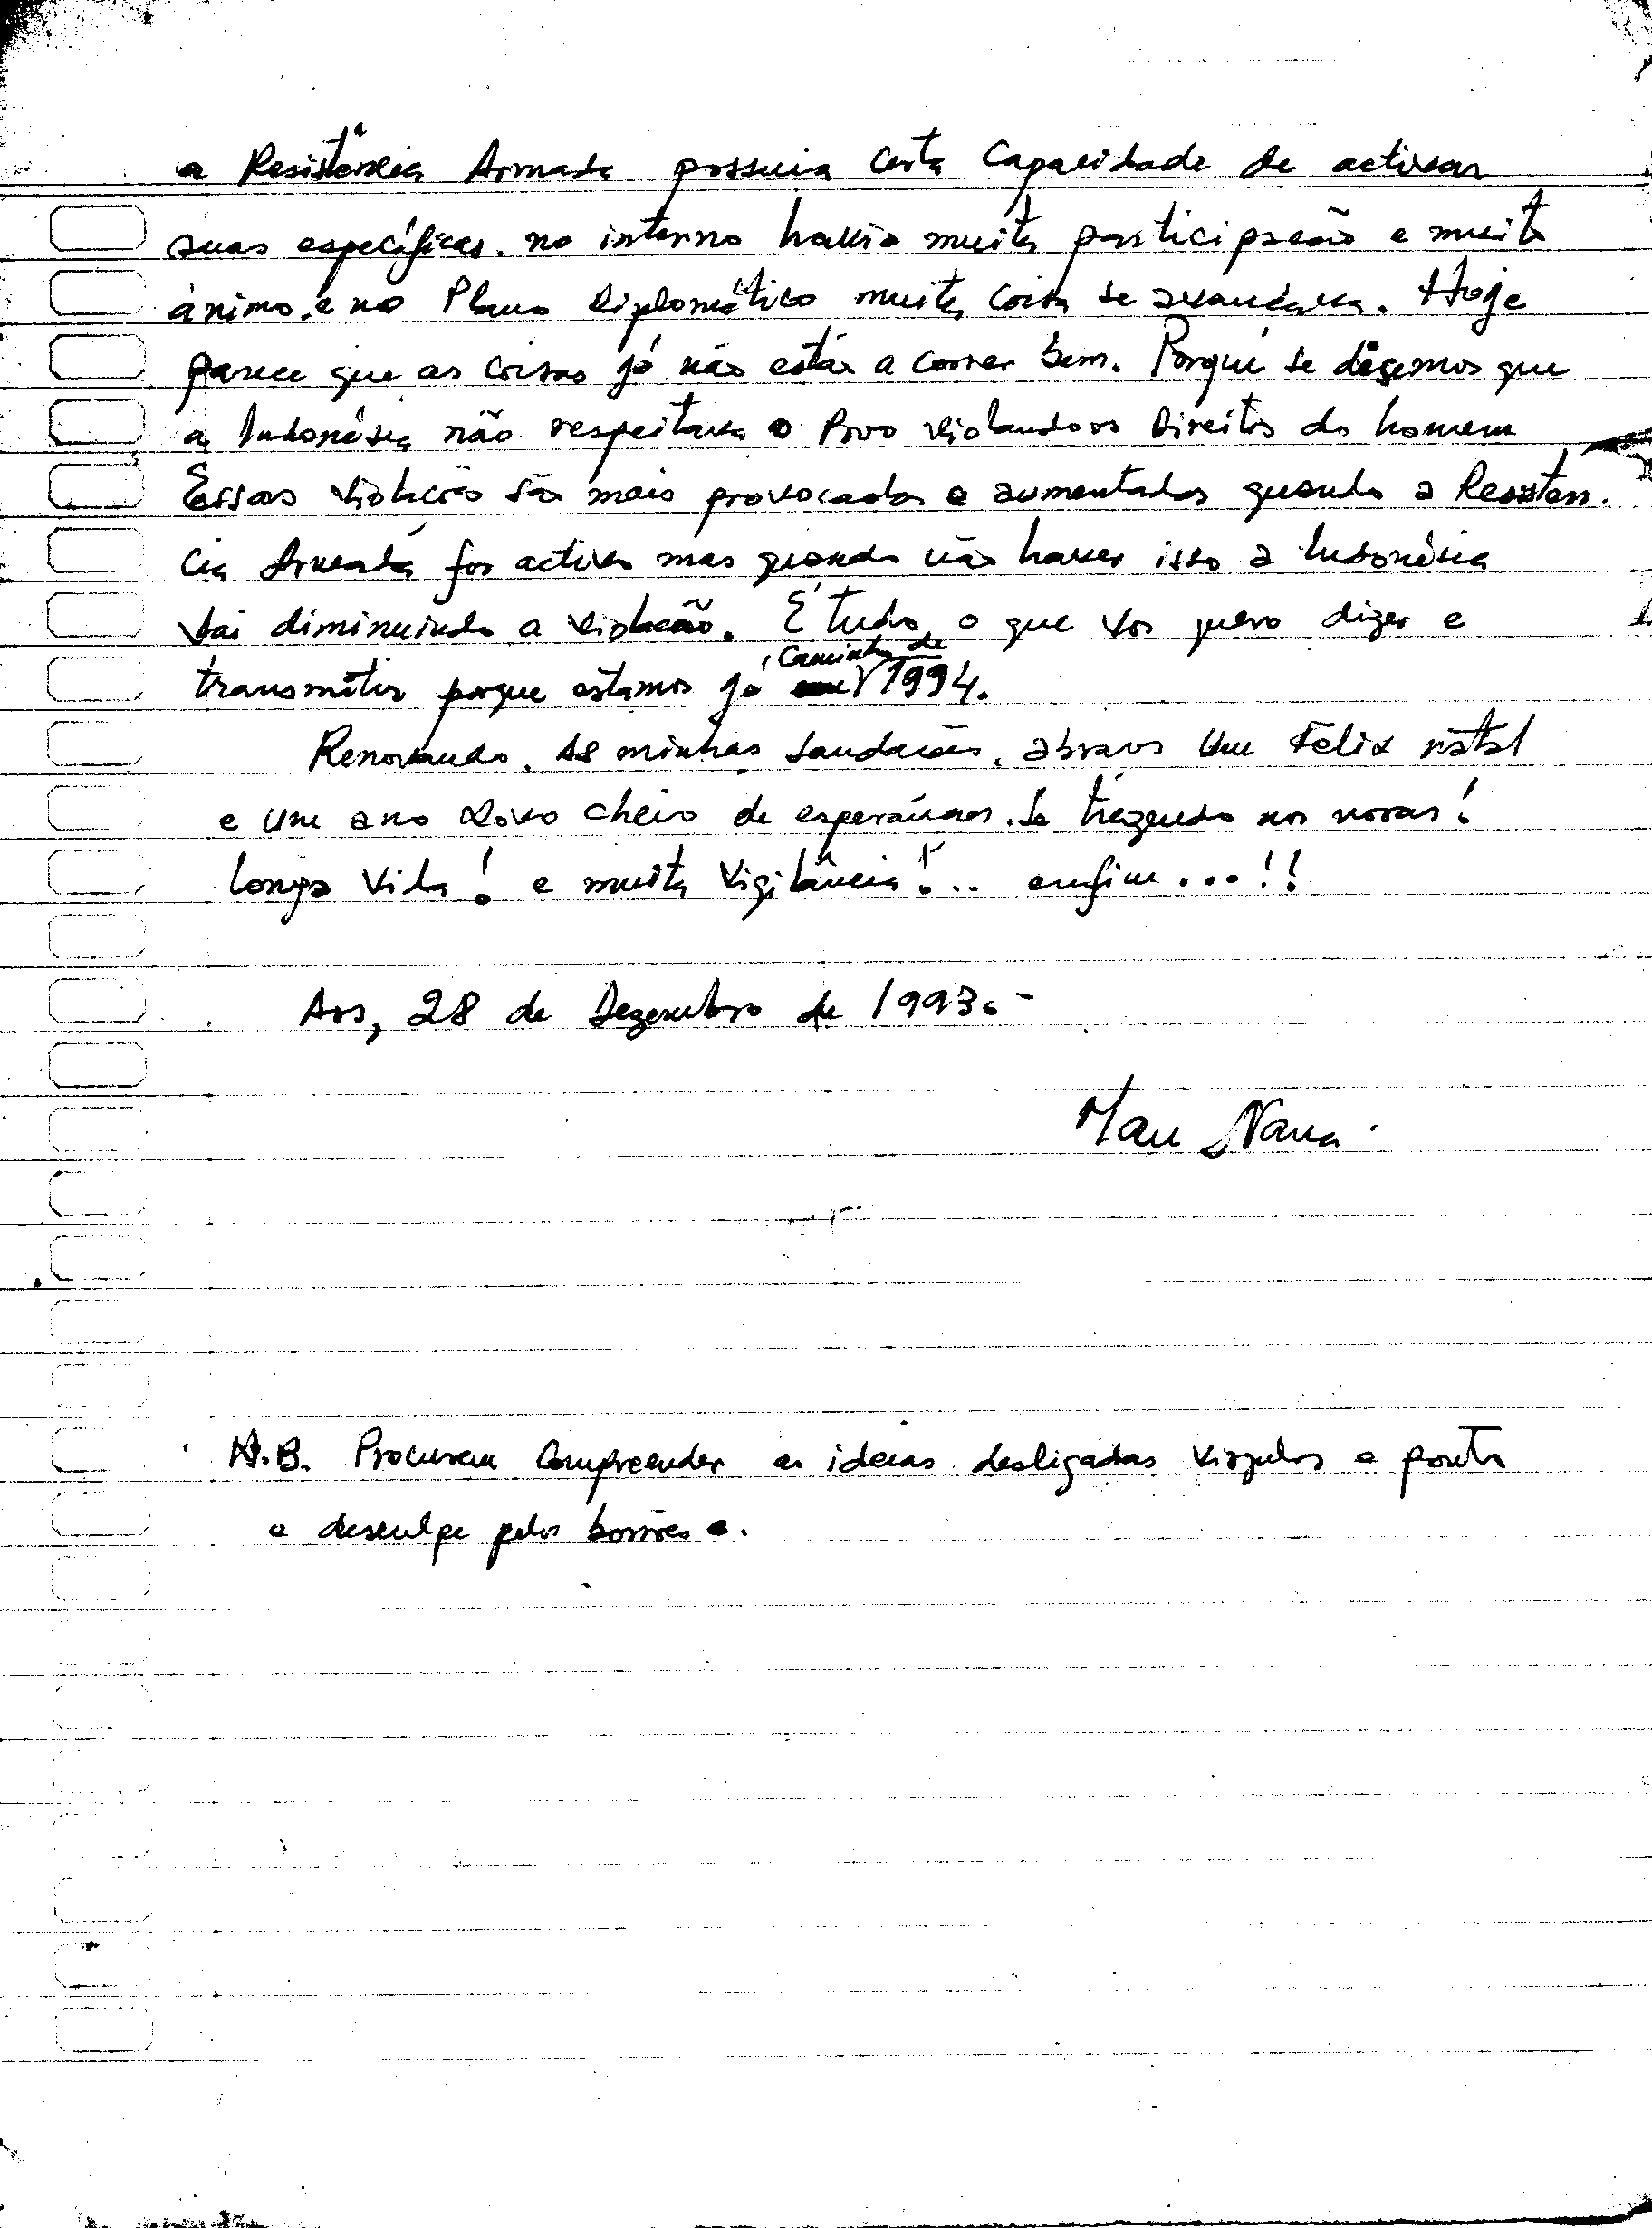 a Resistência Armada possuia certa Capacidade de activar
suas específicas. no interno havia muita participação e muito
ánimo, e no Plano Diplomático muita coisa se avançava. Hoje
parece que as coisas já não estão a correr bem. Porquê se dizemos que
a Indonésia não respeitava o Povo violando os Direitos do homem
Essas violações são mais provocadas e aumentadas quando a Resistên.
cia Armada for activa mas quando não haver isso a Indonésia
vai diminuindo a violação. É tudo o que vos quero dizer e
transmitir porque estamos já Caminho de 1994.
Renovando. As minhas Saudações, abraços Um Felix natal
e Um ano Novo cheio de esperanças. Se trazendo nos novas!
Longa Vida! e muita Vigilância!... enfim...!!
Aos, 28 de Dezembro de 1993.-
Mau Nana
N.B. Procurem Compreender as ideias desligadas virgulas e ponto
e desculpe pelos borrões.